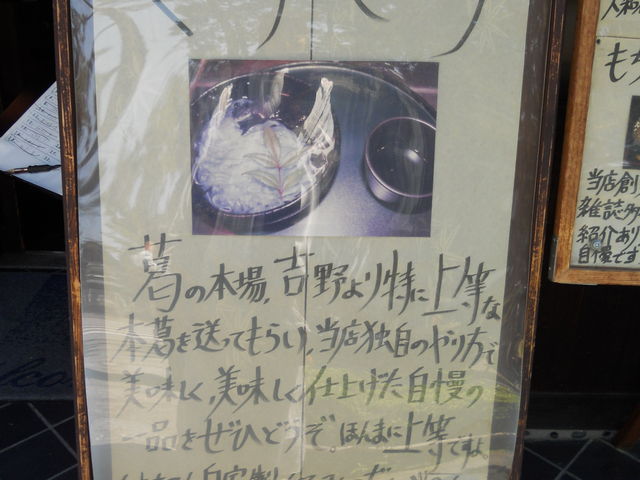 葛の本場、吉野より特に上等な
本葛を送ってもらい、当店独自のやり方で
美味しく、美味しく仕上げた自慢の
一品をぜひどうぞ。ほんまに上等ですよ
もち
当店創
雑誌多
紹介あり
自慢です